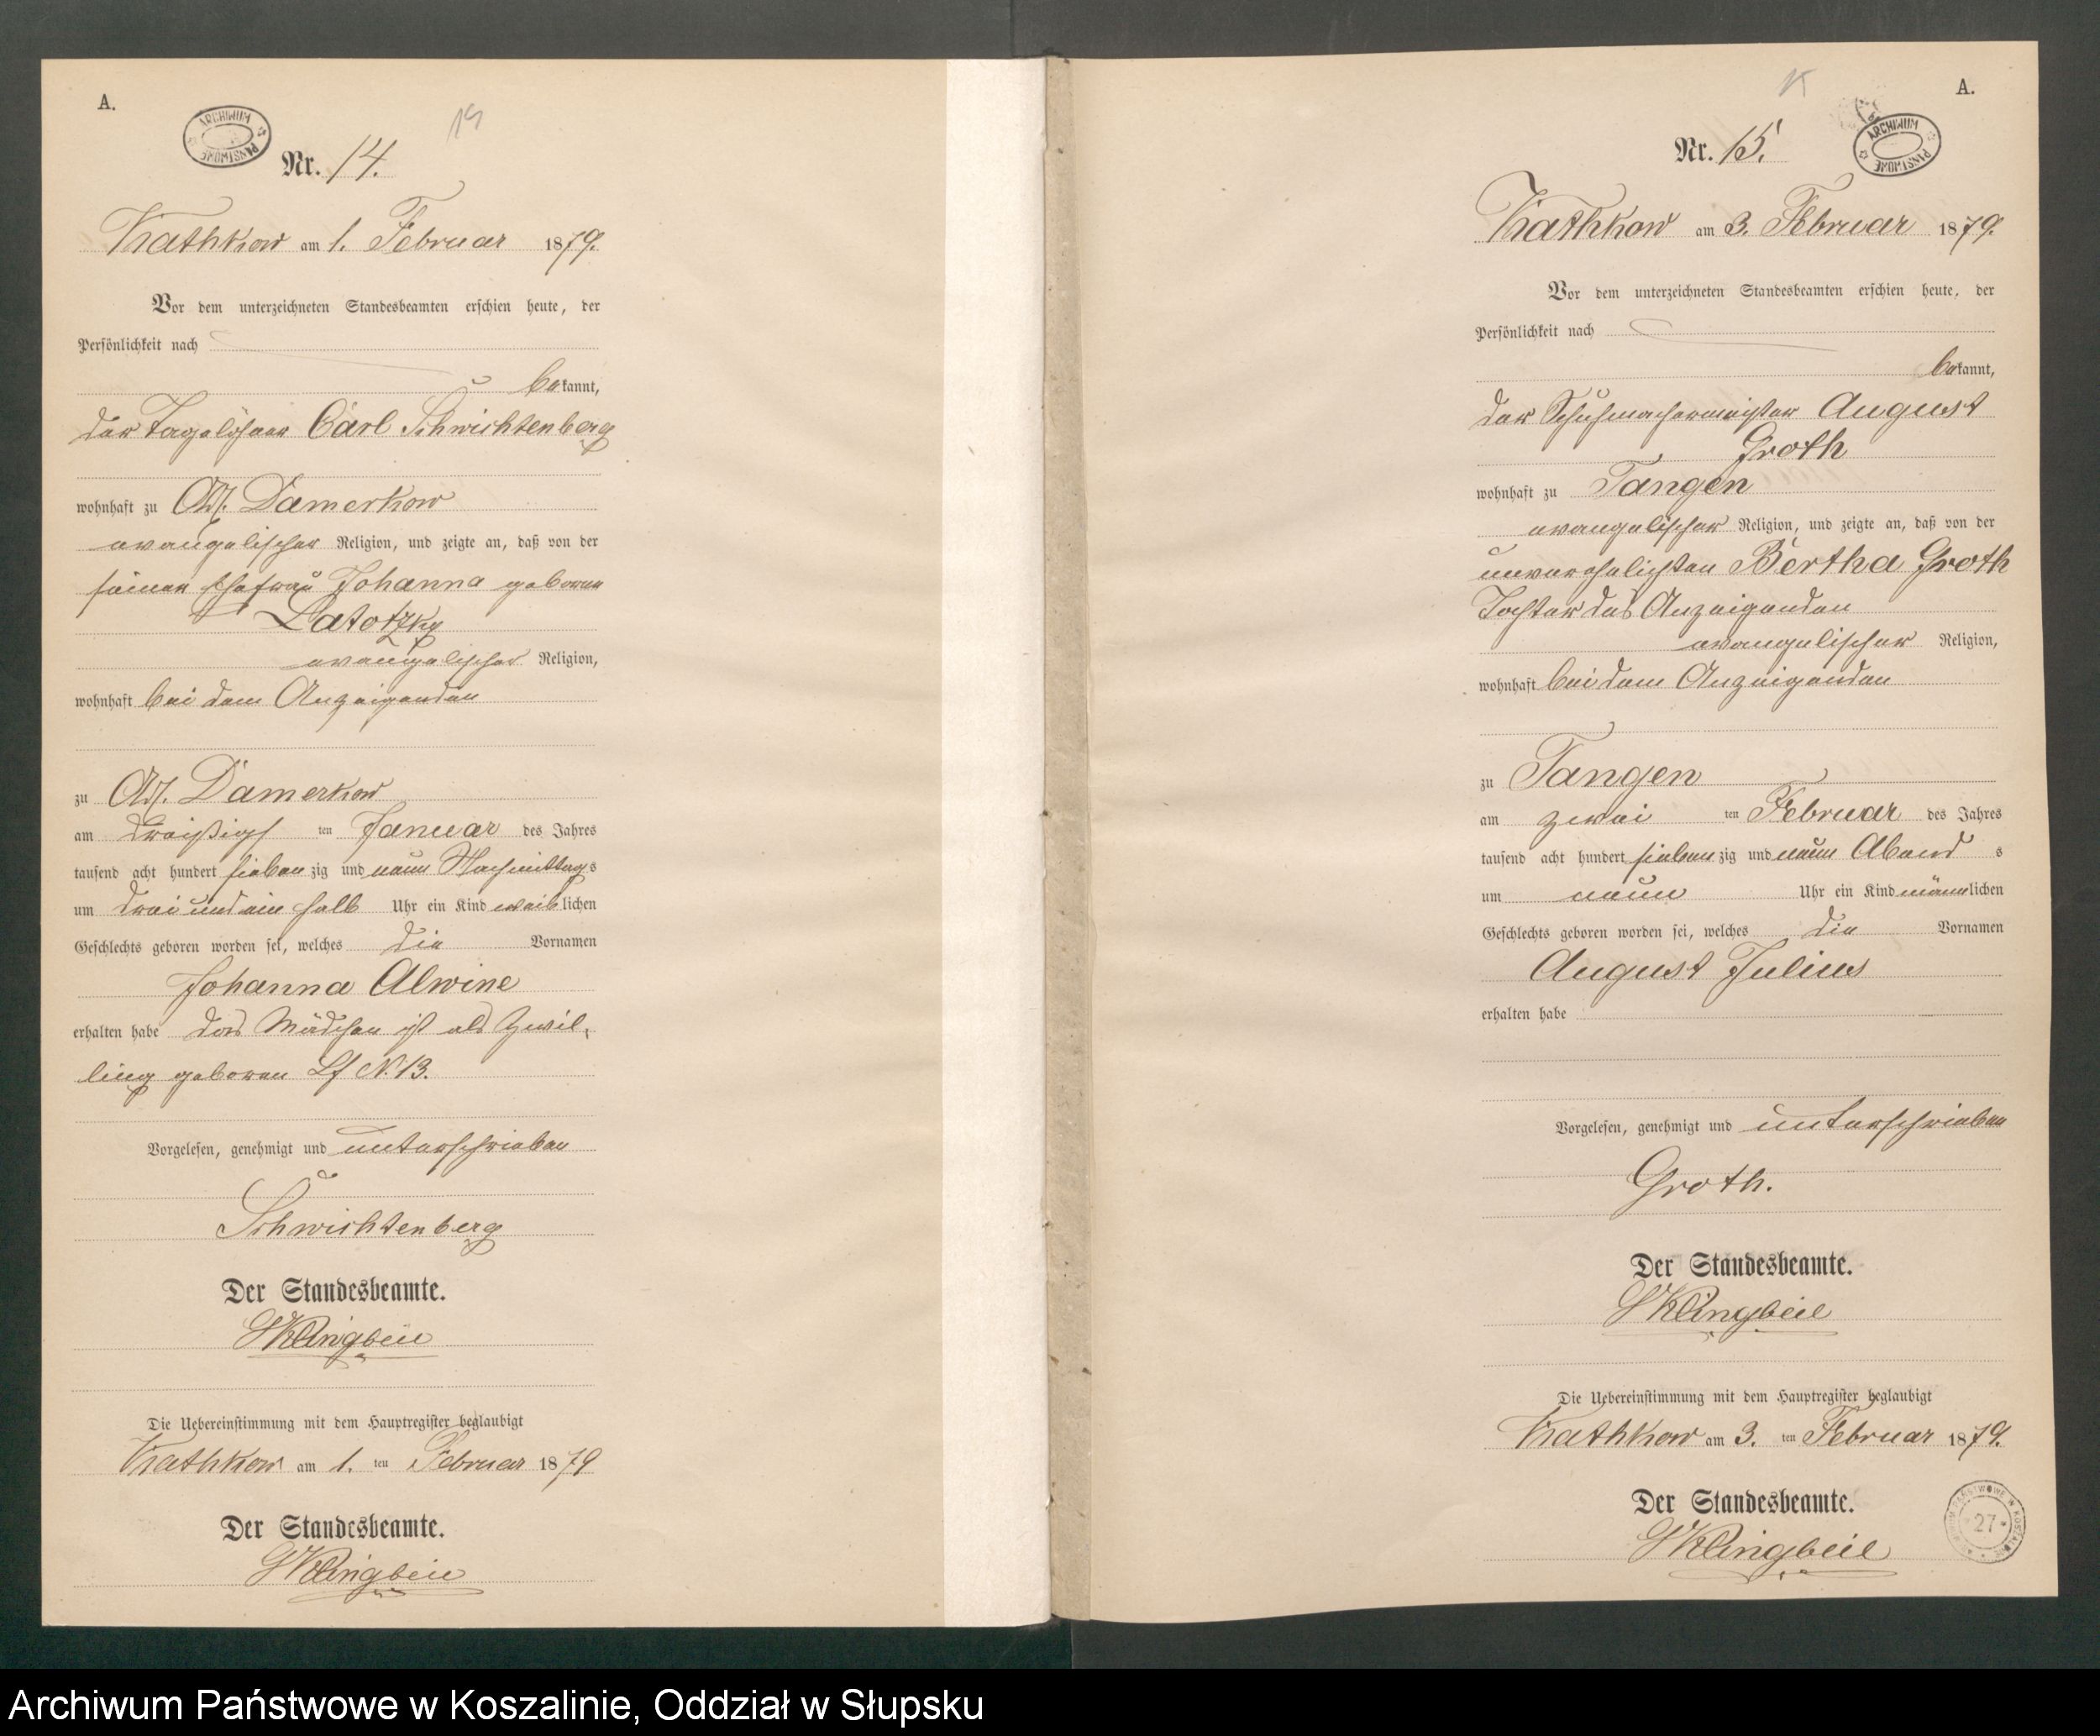 A.
ARCHIWUM PAŃSTWOWE
Nr. 14.
Krathkow am 1. Februar 1879.
Vor dem unterzeichneten Standesbeamten erschien heute, der
Persönlichkeit nach
bekannt,
der Tagelöhner Carl Schwichtenberg
wohnhaft zu Adl. Damerkow
evangelischer Religion, und zeigte an, daß von der
seiner Ehefrau Johanna geboren
Latotzky
evangelischer Religion,
wohnhaft bei dem Anzeigenden
zu Adl. Damerkow
am dreißigs ten Januar des Jahres
tausend acht hundert siebenzig und neun Nachmittags
um drei und ein halb Uhr ein Kind weiblichen
Geschlechts geboren worden sei, welches die Vornamen
Johanna Alwine
erhalten habe das Mädchen ist als Zwil-
ling geboren Lf N. 13.
Vorgelesen, genehmigt und unterschrieben
Schwichtenberg
Der Standesbeamte.
Klingbeil
Die Uebereinstimmung mit dem Hauptregister beglaubigt
Krathkow am 1. ten Februar 1879
Der Standesbeamte.
Klingbeil
A.
ARCHIWUM PAŃSTWOWE
Nr. 15.
Krathkow am 3. Februar 1879.
Vor dem unterzeichneten Standesbeamten erschien heute, der
Persönlichkeit nach
bekannt,
der Schuhmachermeister August
Groth
wohnhaft zu Tangen
evangelischer Religion, und zeigte an, daß von der
unverehelichten Bertha Groth
Tochter des Anzeigenden
evangelischer Religion,
wohnhaft bei dem Anzeigenden
zu Tangen
am zwei ten Februar des Jahres
tausend acht hundert siebenzig und neun Abend s
um neun Uhr ein Kind männlichen
Geschlechts geboren worden sei, welches die Vornamen
August Julius
erhalten habe
Vorgelesen, genehmigt und unterschrieben
Groth.
Der Standesbeamte.
Klingbeil
Die Uebereinstimmung mit dem Hauptregister beglaubigt
Krathkow am 3. ten Februar 1879.
Der Standesbeamte.
Klingbeil
27
Archiwum Państwowe w Koszalinie, Oddział w Słupsku